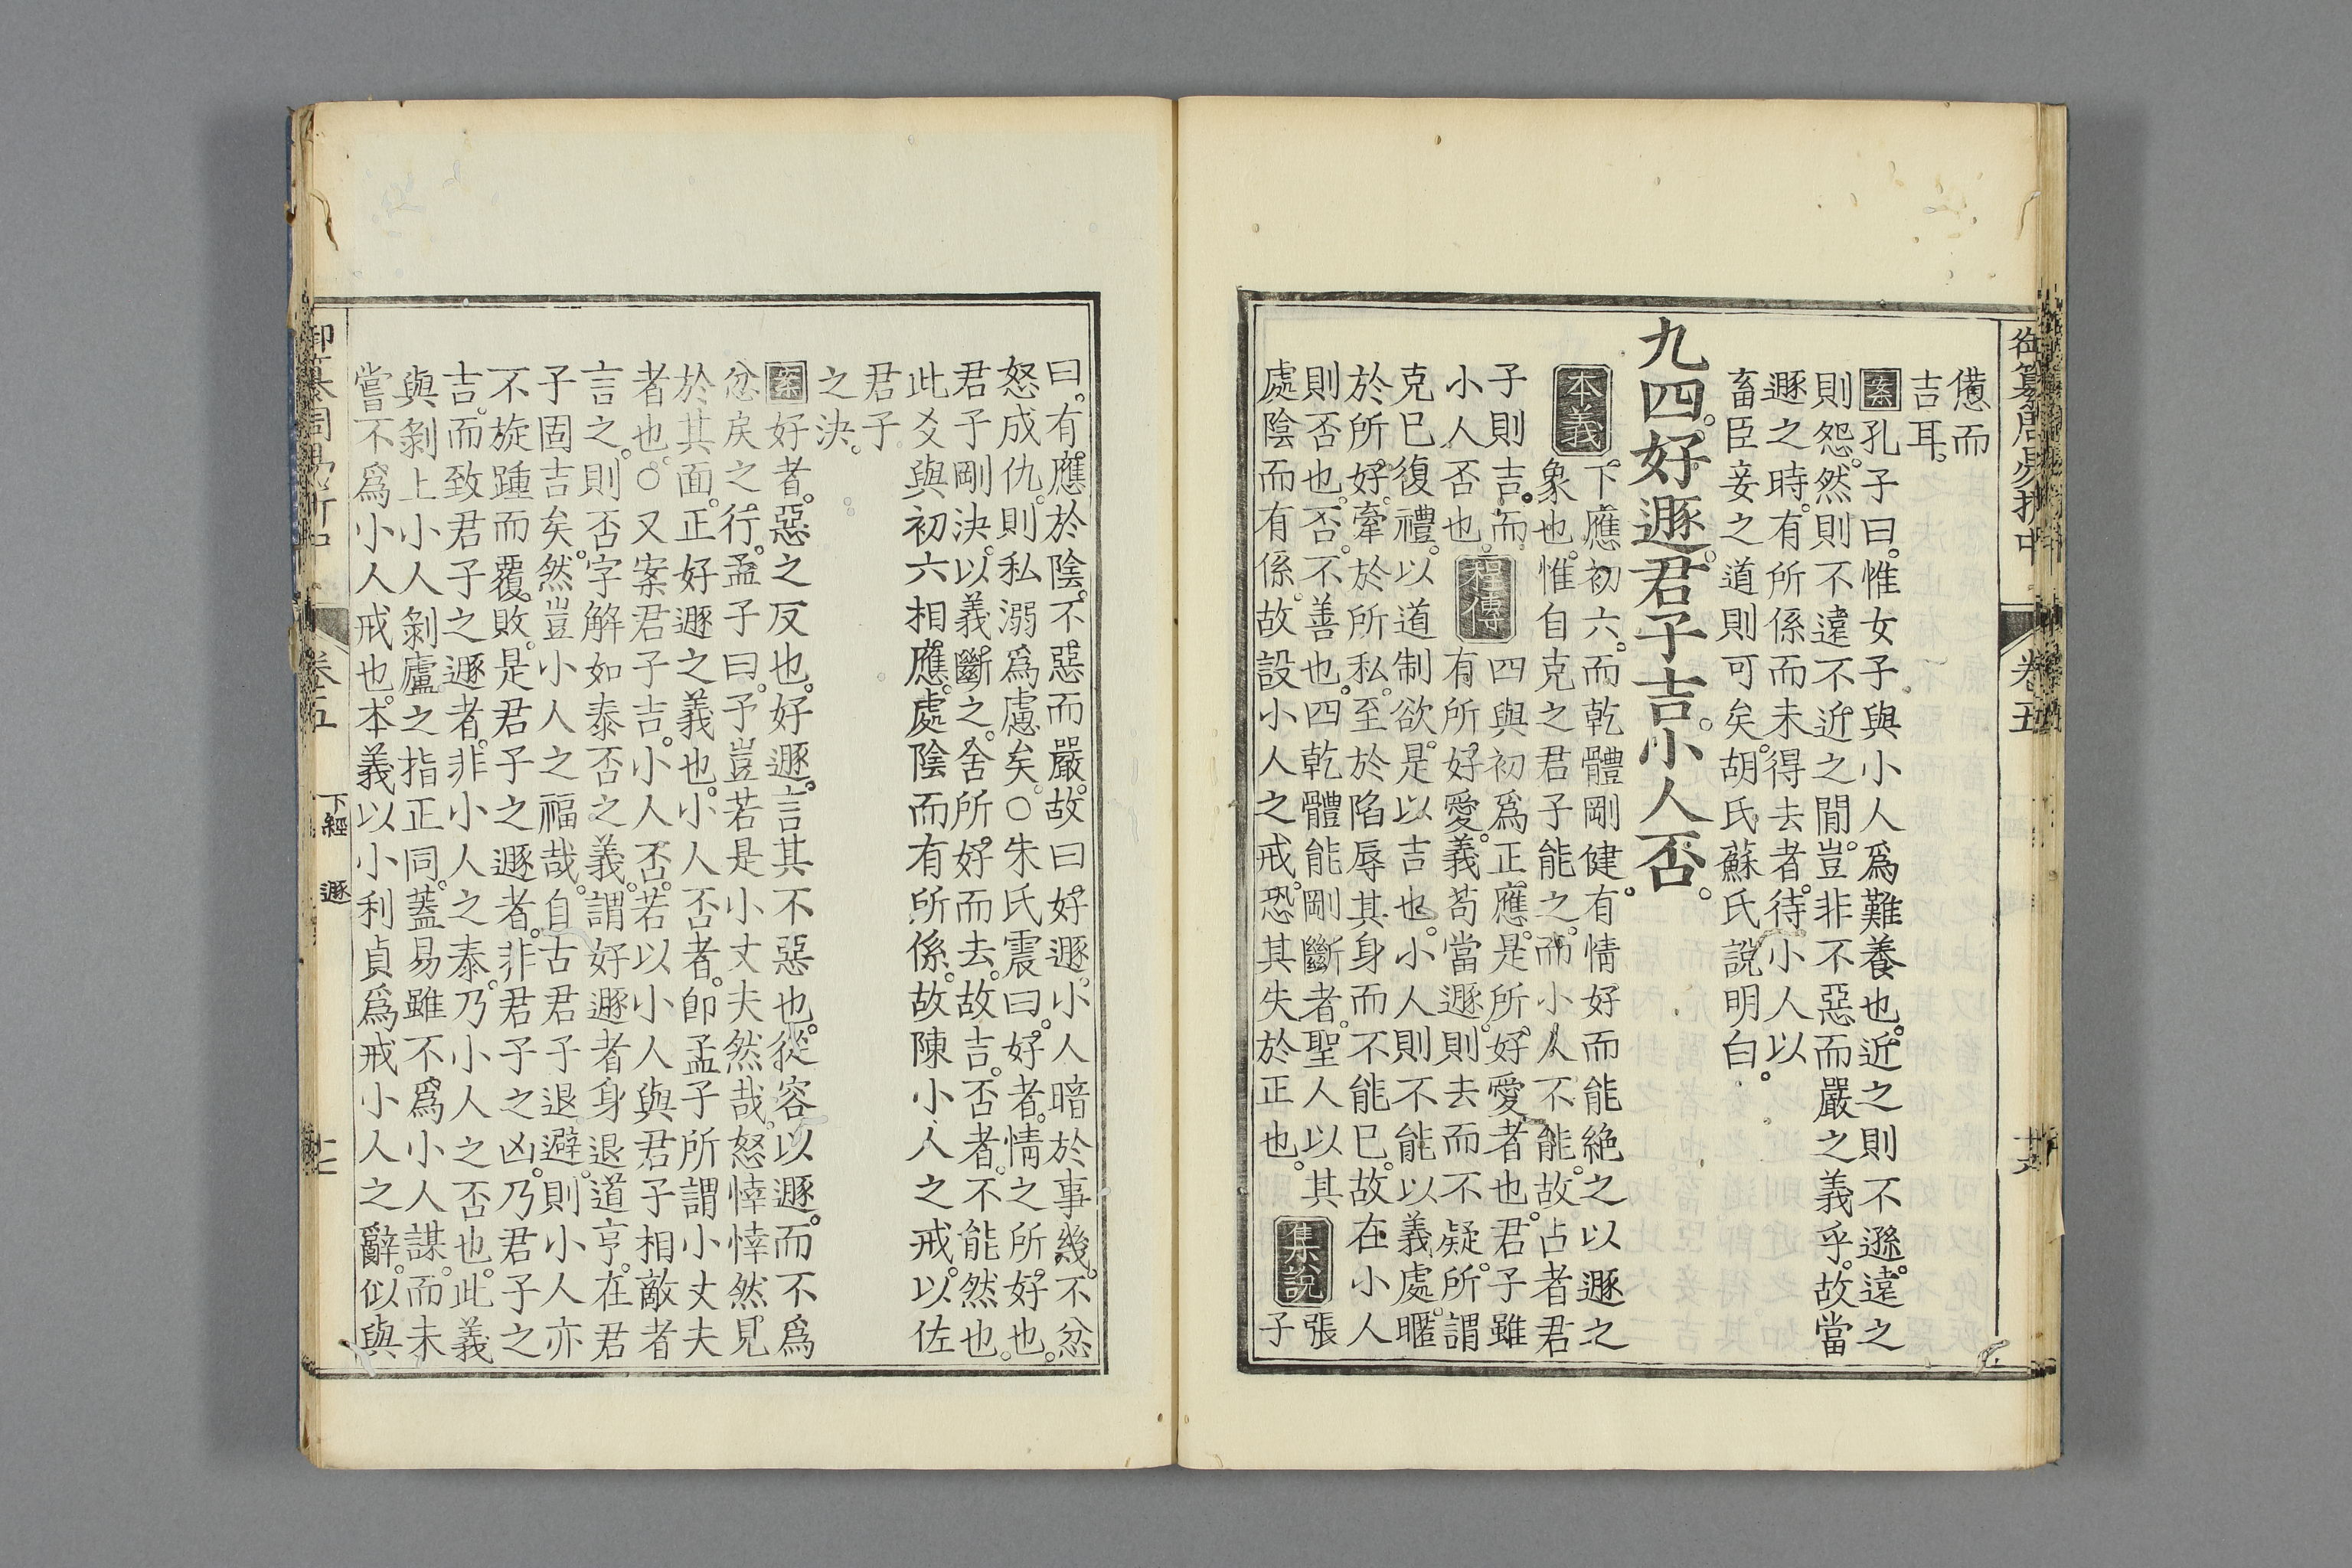 御纂周易折中
卷五
憊而
吉耳。
案孔子曰。惟女子與小人爲難養也。近之則不遜。遠之
則怨。然則不遠不近之閒。豈非不惡而嚴之義乎。故當
遯之時。有所係而未得去者。待小人以
畜臣妾之道則可矣。胡氏蘇氏說明白。
九四。好遯。君子吉。小人否。
本義下應初六。而乾體剛健。有情好而能絶之以遯之
象也。惟自克之君子能之。而小人不能。故占者君
子則吉。而四與初爲正應。是所好愛者也。君子雖
小人否也。程傳有所好愛。義苟當遯。則去而不疑。所謂
克已復禮。以道制欲。是以吉也。小人則不能以義處。暱
於所好。牽於所私。至於陷辱其身而不能已。故在小人
則否也。否。不善也。四乾體能剛斷者。聖人以其集說張
處陰而有係。故設小人之戒。恐其失於正也。子
曰。有應於陰。不惡而嚴。故曰好遯。小人暗於事幾。不忿
怒成仇。則私溺爲慮矣。○朱氏震曰。好者。情之所好也。
君子剛決。以義斷之。舍所好而去。故吉。否者。不能然也。
此爻與初六相應。處陰而有所係。故陳小人之戒。以佐
君子
之決。
案好者。惡之反也。好遯。言其不惡也。從容以遯。而不爲
忿戾之行。孟子曰。予豈若是小丈夫然哉。怒悻悻然見
於其面。正好遯之義也。小人否者。卽孟子所謂小丈夫
者也。○又案君子吉。小人否。若以小人與君子相敵者
言之。則否字解如泰否之義。謂好遯者身退道亨。在君
子固吉矣。然豈小人之福哉。自古君子退避。則小人亦
不旋踵而覆敗。是君子之遯者。非君子之凶。乃君子之
吉。而致君子之遯者。非小人之泰。乃小人之否也。此義
與剝上小人剝廬之指正同。蓋易雖不爲小人謀。而未
嘗不爲小人戒也。本義以小利貞爲戒小人之辭。似與
卷五
下經
遯